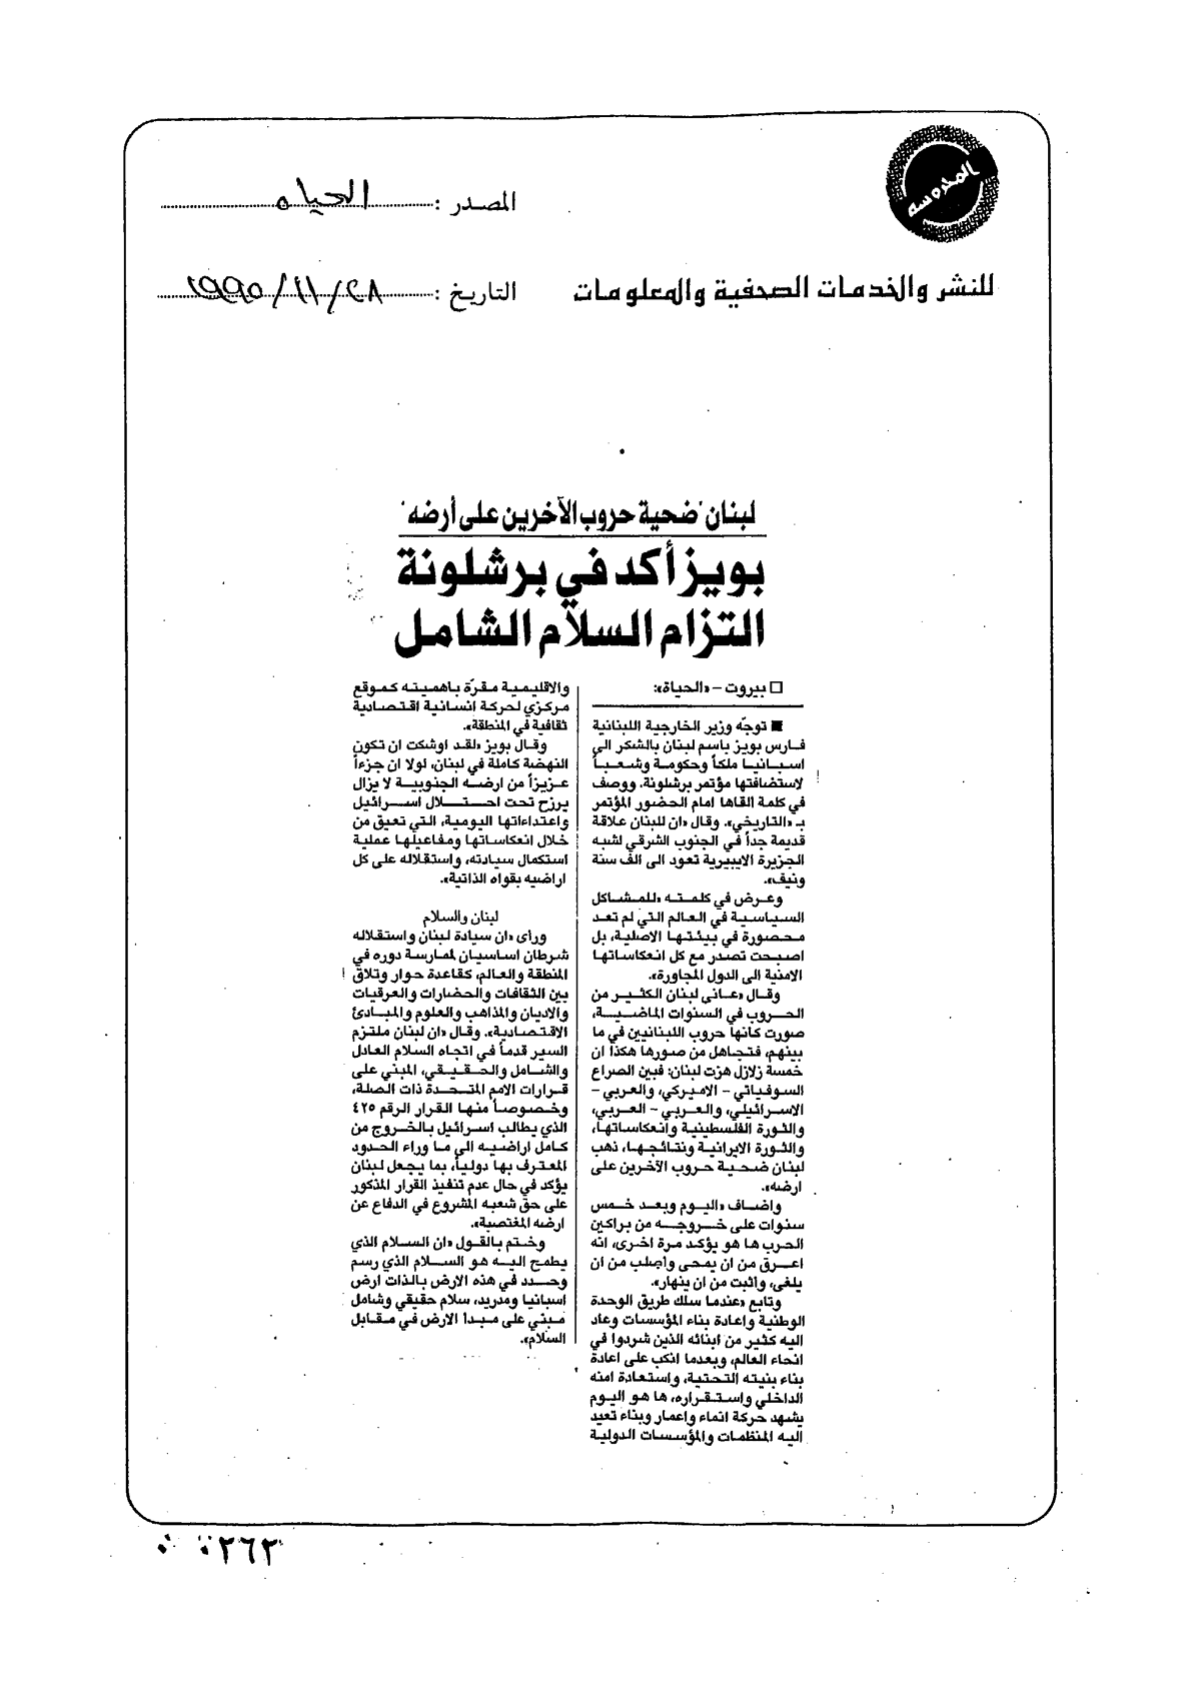 المحروسة
المصدر : الحياه
للنشر والخدمات الصحفية والمعلومات
التاريخ : ٢٨/ ١١/ ١٩٩٥
لبنان "ضحية حروب الآخرين على أرضه"
بويز أكد في برشلونة
التزام السلام الشامل
□ بيروت – «الحياة»:
■ توجّه وزير الخارجية اللبنانية
فارس بويز باسم لبنان بالشكر الى
اسبانيا ملكاً وحكومة وشعباً
لاستضافتها مؤتمر برشلونة. ووصف
في كلمة القاها امام الحضور المؤتمر
بـ «التاريخي». وقال «ان للبنان علاقة
قديمة جداً في الجنوب الشرقي لشبه
الجزيرة الايبيرية تعود الى الف سنة
ونيف».
وعرض في كلمته «للمشاكل
السياسية في العالم التي لم تعد
محصورة في بيئتها الاصلية، بل
اصبحت تصدر مع كل انعكاساتها
الامنية الى الدول المجاورة».
وقال «عانى لبنان الكثير من
الحروب في السنوات الماضية،
صورت كانها حروب اللبنانيين في ما
بينهم، فتجاهل من صورها هكذا ان
خمسة زلازل هزت لبنان: فبين الصراع
السوفياتي – الاميركي، والعربي –
الاسرائيلي، والعربي – العربي،
والثورة الفلسطينية وانعكاساتها،
والثورة الايرانية ونتائجها، ذهب
لبنان ضحية حروب الآخرين على
ارضه».
واضاف «اليوم وبعد خمس
سنوات على خروجه من براكين
الحرب ها هو يؤكد مرة اخرى، انه
اعرق من ان يمحى واصلب من ان
يلغى، واثبت من ان ينهار».
وتابع «عندما سلك طريق الوحدة
الوطنية واعادة بناء المؤسسات وعاد
اليه كثير من ابنائه الذين شردوا في
انحاء العالم، وبعدما انكب على اعادة
بناء بنيته التحتية، واستعادة امنه
الداخلي واستقراره، ها هو اليوم
يشهد حركة انماء واعمار وبناء تعيد
اليه المنظمات والمؤسسات الدولية
والاقليمية مقرّة باهميته كموقع
مركزي لحركة انسانية اقتصادية
ثقافية في المنطقة».
وقال بويز «لقد اوشكت ان تكون
النهضة كاملة في لبنان، لولا ان جزءاً
عزيزاً من ارضه الجنوبية لا يزال
يرزح تحت احتلال اسرائيل
واعتداءاتها اليومية، التي تعيق من
خلال انعكاساتها ومفاعيلها عملية
استكمال سيادته، واستقلاله على كل
اراضيه بقواه الذاتية».
لبنان والسلام
ورأى «ان سيادة لبنان واستقلاله
شرطان اساسيان لممارسة دوره في
المنطقة والعالم، كقاعدة حوار وتلاق
بين الثقافات والحضارات والعرقيات
والاديان والمذاهب والعلوم والمبادئ
الاقتصادية». وقال «ان لبنان ملتزم
السير قدماً في اتجاه السلام العادل
والشامل والحقيقي، المبني على
قرارات الامم المتحدة ذات الصلة،
وخصوصاً منها القرار الرقم ٤٢٥
الذي يطالب اسرائيل بالخروج من
كامل اراضيه الى ما وراء الحدود
المعترف بها دولياً، بما يجعل لبنان
يؤكد في حال عدم تنفيذ القرار المذكور
على حق شعبه المشروع في الدفاع عن
ارضه المغتصبة».
وختم بالقول «ان السلام الذي
يطمح اليه هو السلام الذي رسم
وحدد في هذه الارض بالذات ارض
اسبانيا ومدريد، سلام حقيقي وشامل
مبني على مبدأ الارض في مقابل
السلام».
٢٦٣